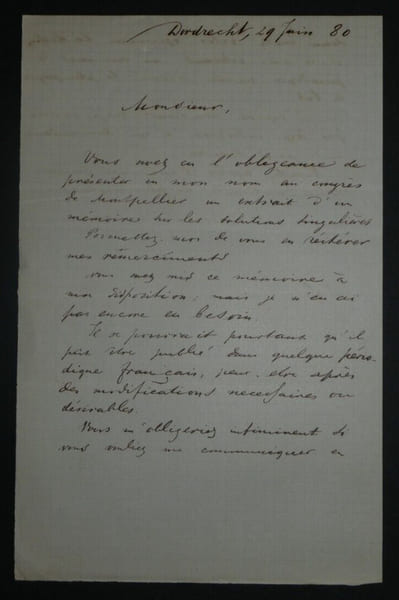 Dordrecht, 29 Juin 80
Monsieur,
Vous avez eu l'obligeance de
présenter en mon nom au congrès
de Montpellier un extrait d'un
mémoire sur les solutions singulières
Permettez-moi de vous en réitérer
mes remerciments
vous avez mis ce mémoire à
ma disposition, mais je n'en ai
pas encore eu besoin.
Il se pourrait pourtant qu'il
pût être publié dans quelque pério-
dique français, peut-être après
des modifications necessaires ou
désirables.
Vous m'obligeriez infiniment si
vous vouliez me communiquer en